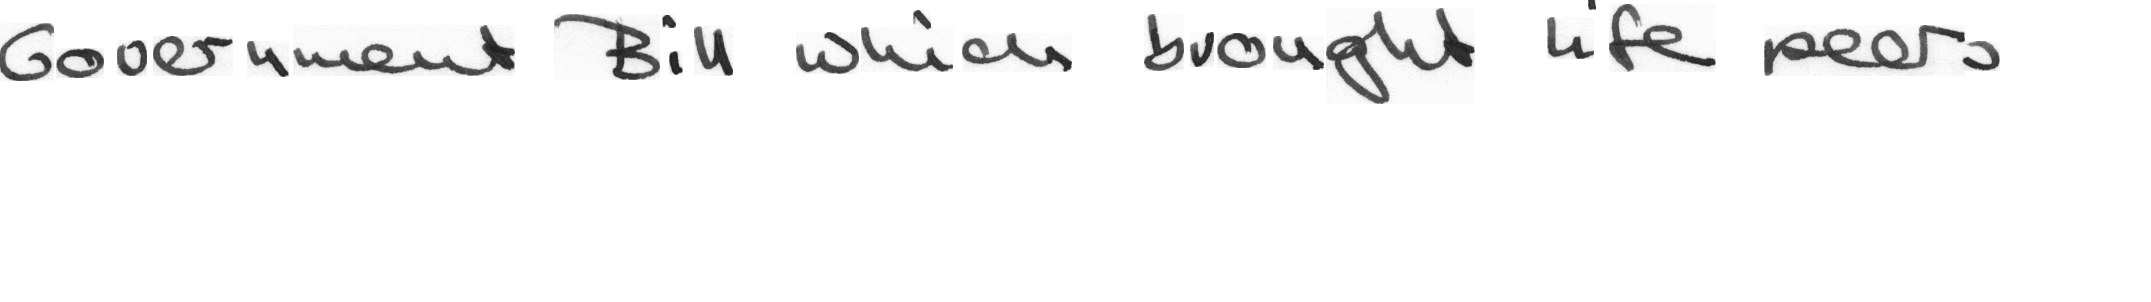 Government Bill which brought life peers